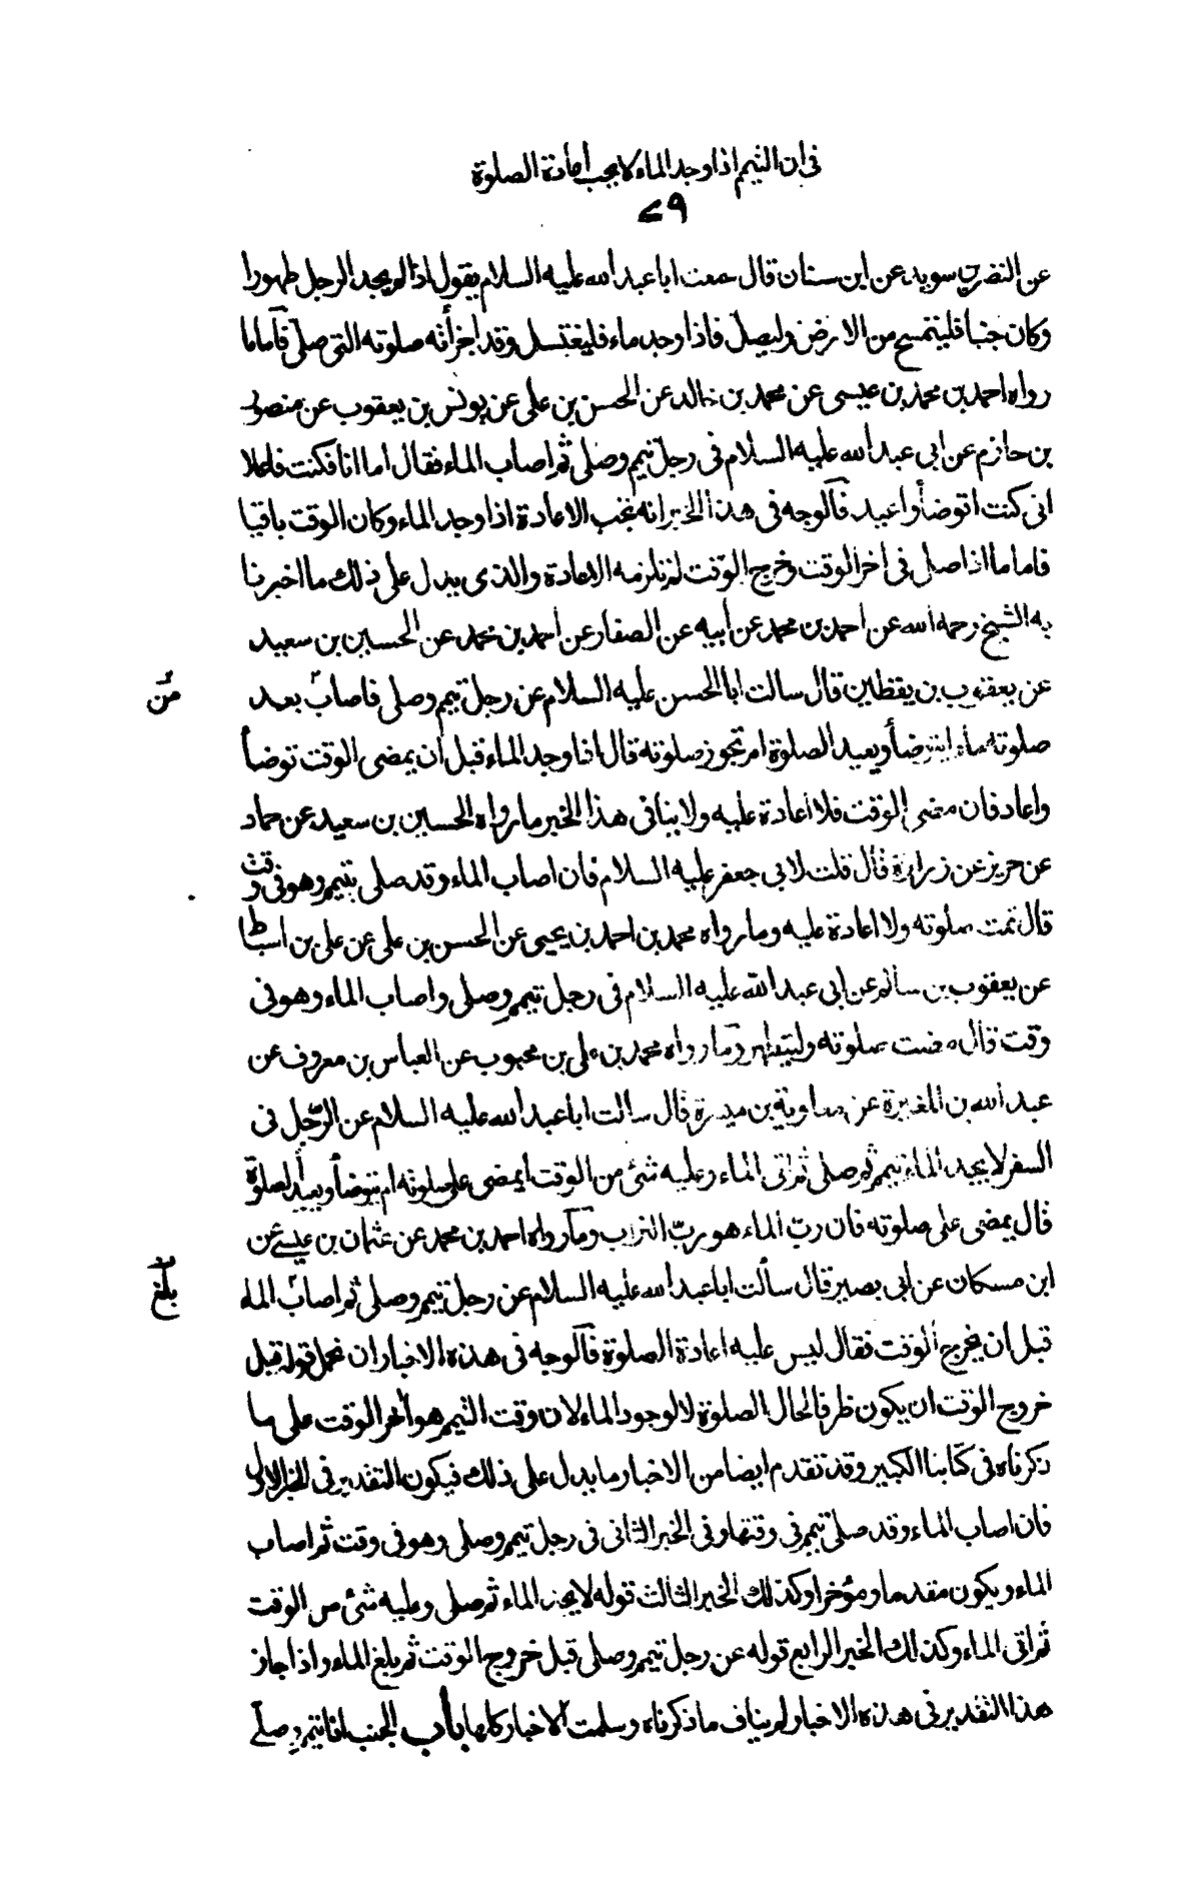 فى ان التيمم اذا وجد الماء لا يجب اعادة الصلوة
٧٩
عن النضر بن سويد عن ابن سنان قال سمعت ابا عبد الله عليه السلام يقول اذا لم يجد الرجل طهورا
وكان جنبا فليتمسح من الارض وليصل فاذا وجد ماء فليغتسل وقد اجزأته صلوته التى صلى فاما ما
رواه احمد بن محمد بن عيسى عن محمد بن خالد عن الحسن بن على عن يونس بن يعقوب عن منصور
بن حازم عن ابى عبد الله عليه السلام فى رجل تيمم وصلى ثم اصاب الماء فقال اما انا فكنت فاعلا
انى كنت اتوضأ واعيد فالوجه فى هذا الخبر انه تجب الاعادة اذا وجد الماء وكان الوقت باقيا
فاما ما اذا صلى فى اخر الوقت وخرج الوقت لم تلزمه الاعادة والذى يدل على ذلك ما اخبرنا
به الشيخ رحمه الله عن احمد بن محمد عن ابيه عن الصفار عن احمد بن محمد عن الحسين بن سعيد
عن يعقوب بن يقطين قال سالت ابا الحسن عليه السلام عن رجل تيمم وصلى فاصاب بعد
صلوته ماء ايتوضأ ويعيد الصلوة ام تجوز صلوته قال اذا وجد الماء قبل ان يمضى الوقت توضأ
واعاد فان مضى الوقت فلا اعادة عليه ولا ينافى هذا الخبر ما رواه الحسين بن سعيد عن حماد
عن حريز عن زرارة قال قلت لابى جعفر عليه السلام فان اصاب الماء وقد صلى بتيمم وهو فى وقت
قال تمت صلوته ولا اعادة عليه وما رواه محمد بن احمد بن يحيى عن الحسن بن على عن على بن اسباط
عن يعقوب بن سالم عن ابى عبد الله عليه السلام فى رجل تيمم وصلى واصاب الماء وهو فى
وقت قال مضت صلوته وليتطهر وما رواه محمد بن على بن محبوب عن العباس بن معروف عن
عبد الله بن المغيرة عن معاوية بن ميسرة قال سالت ابا عبد الله عليه السلام عن الرّجل فى
السفر لا يجد الماء تيمم ثم صلى ثم اتى الماء وعليه شئ من الوقت ايمضى على صلوته ام يتوضأ ويعيد الصلوة
قال يمضى على صلوته فان ربّ الماء هو ربّ التراب وما رواه احمد بن محمد عن عثمان بن عيسى عن
ابن مسكان عن ابى بصير قال سألت ابا عبد الله عليه السلام عن رجل تيمم وصلى ثم اصاب الماء
قبل ان يخرج الوقت فقال ليس عليه اعادة الصلوة فالوجه فى هذه الاخبار ان نحمل قوله قبل
خروج الوقت ان يكون ظرفا لحال الصلوة لا لوجود الماء لان وقت التيمم هو اخر الوقت على ما
ذكرناه فى كتابنا الكبير وقد تقدم ايضا من الاخبار ما يدل على ذلك فيكون التقدير فى الخبر الاول
فان اصاب الماء وقد صلى بتيمم فى وقتها وفى الخبر الثانى فى رجل تيمم وصلى وهو فى وقت ثم اصاب
الماء ويكون مقدما ومؤخرا وكذلك الخبر الثالث قوله لا يجد الماء ثم صلى وعليه شئ من الوقت
ثم اتى الماء وكذلك الخبر الرابع قوله عن رجل تيمم وصلى قبل خروج الوقت ثم بلغ الماء واذا جاز
هذا التقدير فى هذه الاخبار لم يناف ما ذكرناه وسلمت الاخبار كلها باب الجنب اذا تيمم وصلّى
من
بلغ